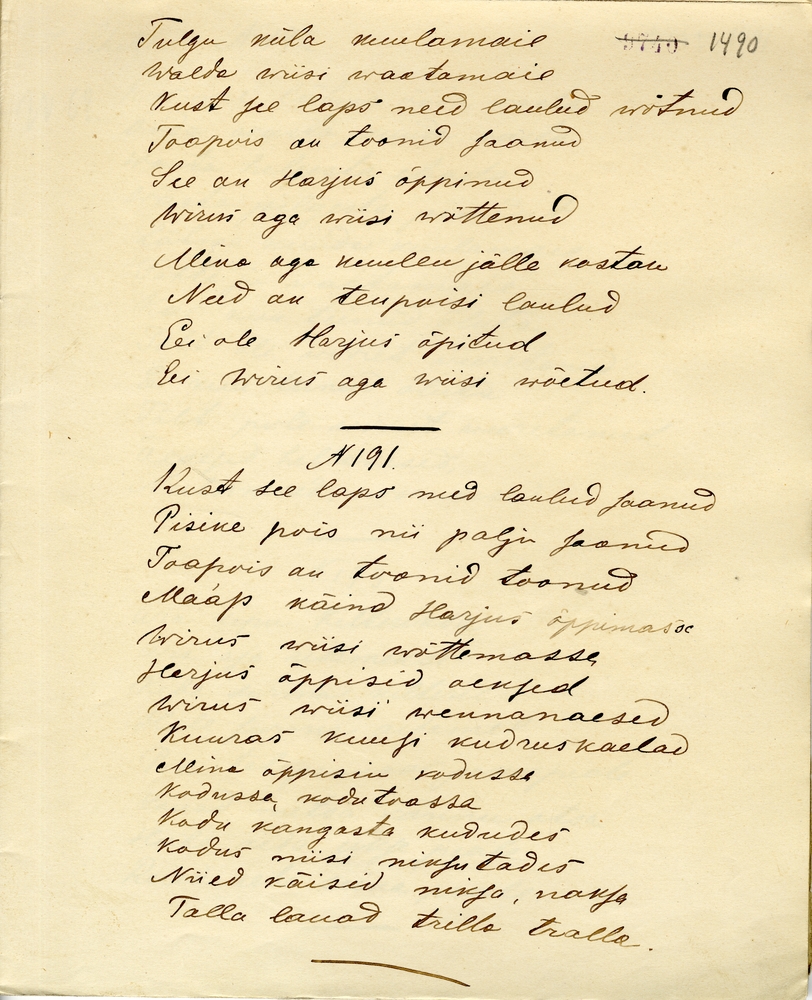 1490
Tulgu küla kuulamaie
Walda wiisi waatamaie
Kust see laps need laulud wõtnud
Toapois on toonid saanud
See on Harjus õppinud
Wirus aga wiisi wõttenud
Mina aga kuulen jälle kostan
Need on teupoisi laulud
Ei ole Harjus õpitud
Ei Wirus aga wiisi wõetud.
N 191.
Kust see laps need laulud saanud
Pisike pois nii palju saanud
Toapois on toonid toonud
Maap käind Harjus õppimasse
Wirus wiisi wõttemasse
Harjus õppisid oeksed
Wirus wiisi wennanaesed
Kuuras kuusi kudruskaelad
Mina õppisin kodussa
Kodussa, kodu toassa
Kodu kangasta kududes
Kodus niisi niksutades
Niied käisid niksa, naksa
Talla lauad trilla tralla.